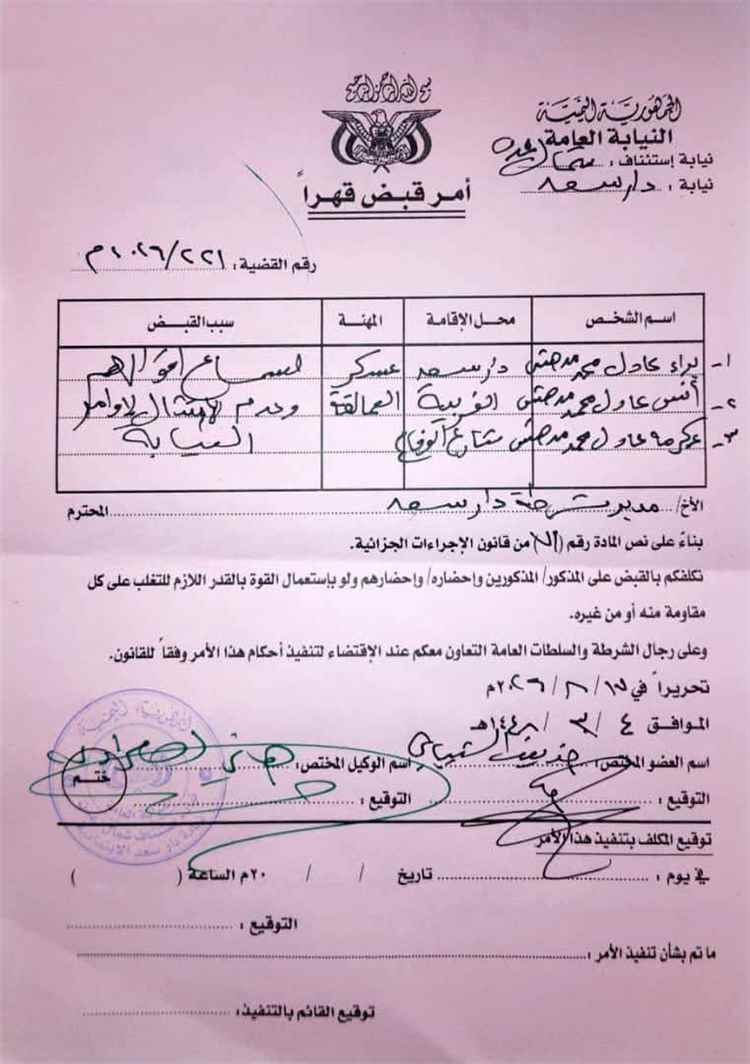 بسم الله الرحمن الرحيم
الجمهورية اليمنية
النيابة العامة
نيابة إستئناف : شمال عدن
نيابة : دار سعد
أمر قبض قهراً
رقم القضية : ٢٢١/٢٠٢٦م
اسم الشخص محل الإقامة المهنة سبب القبض
١- براء عادل محمد مدهش دار سعد عسكر لسماع اقوالهم
٢- أنس عادل محمد مدهش الغربية العمالقة وعدم الامتثال لاوامر
٣- عكرمه عادل محمد مدهش شارع النيابة
الأخ/ مدير شرطة دار سعد المحترم
بناءً على نص المادة رقم ( ) من قانون الإجراءات الجزائية.
نكلفكم بالقبض على المذكور/ المذكورين وإحضاره/ وإحضارهم ولو بإستعمال القوة بالقدر اللازم للتغلب على كل
مقاومة منه أو من غيره.
وعلى رجال الشرطة والسلطات العامة التعاون معكم عند الإقتضاء لتنفيذ أحكام هذا الأمر وفقاً للقانون.
تحريراً في / ٨ / ٢٠٢٦م
الموافق ٤ / ٣ / ١٤٤٨هـ
اسم العضو المختص : اسم الوكيل المختص :
التوقيع : التوقيع :
ختم
توقيع المكلف بتنفيذ هذا الأمر
في يوم : تاريخ / / ٢٠م الساعة ( )
التوقيع :
ما تم بشأن تنفيذ الأمر :
توقيع القائم بالتنفيذ :